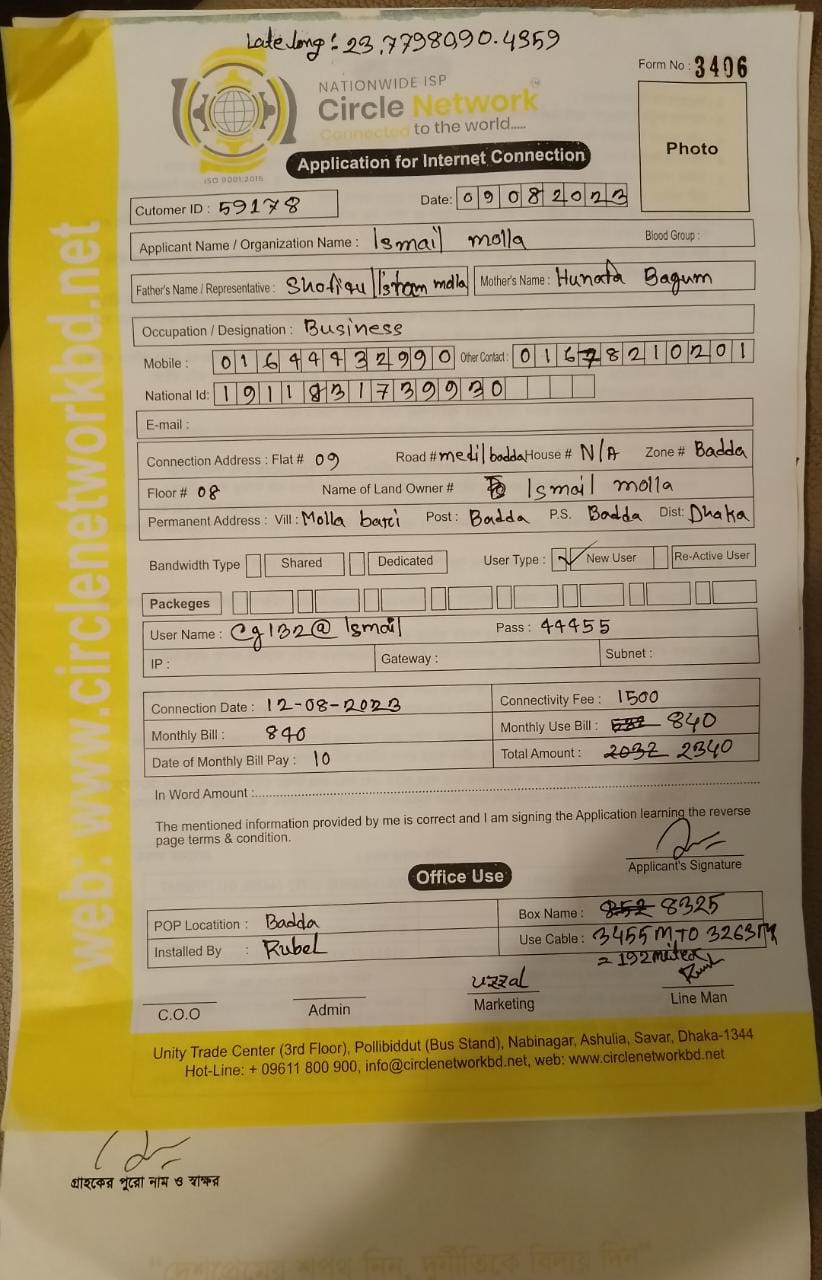 Late long : 23.7798090.4359
Form No : 3406
NATIONWIDE ISP
Circle Network
Connected to the world.....
ISO 9001:2015
Photo
Application for Internet Connection
Cutomer ID : 59178 Date: 09082023
Applicant Name / Organization Name : Ismail molla Blood Group :
Father's Name / Representative : Shofiqul Islam molla Mother's Name : Hunafa Bagum
Occupation / Designation : Business
Mobile : 01644432990 Other Contact : 01678210201
National Id: 1911831739930
E-mail :
Connection Address : Flat # 09 Road # medil badda House # N/A Zone # Badda
Floor # 08 Name of Land Owner # Ismail molla
Permanent Address : Vill : Molla bari Post : Badda P.S. Badda Dist: Dhaka
Bandwidth Type Shared Dedicated User Type : New User Re-Active User
Packeges
User Name : Cg132@Ismail Pass : 44455
IP : Gateway : Subnet :
Connection Date : 12-08-2023 Connectivity Fee : 1500
Monthly Bill : 840 Monthly Use Bill : 840
Date of Monthly Bill Pay : 10 Total Amount : 2032 2340
In Word Amount :
The mentioned information provided by me is correct and I am signing the Application learning the reverse
page terms & condition.
Applicant's Signature
Office Use
POP Locatition : Badda Box Name : 852 8325
Installed By : Rubel Use Cable : 3455 M TO 3263 M
= 192 miter
C.O.O Admin Marketing Line Man
Unity Trade Center (3rd Floor), Pollibiddut (Bus Stand), Nabinagar, Ashulia, Savar, Dhaka-1344
Hot-Line: + 09611 800 900, info@circlenetworkbd.net, web: www.circlenetworkbd.net
web: www.circlenetworkbd.net
গ্রাহকের পুরো নাম ও স্বাক্ষর
"দেশপ্রেমের শপথ নিন, দুর্নীতিকে বিদায় দিন"